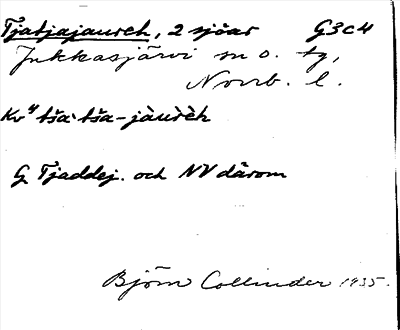 Tjatjajaureh, 2 sjöar G3c4
Jukkasjärvi sn o. tg,
Norrb. l.
Kv⁴ tša·tša-jàu̇rèh
G Tjaddej. och NV därom
Björn Collinder 1935.